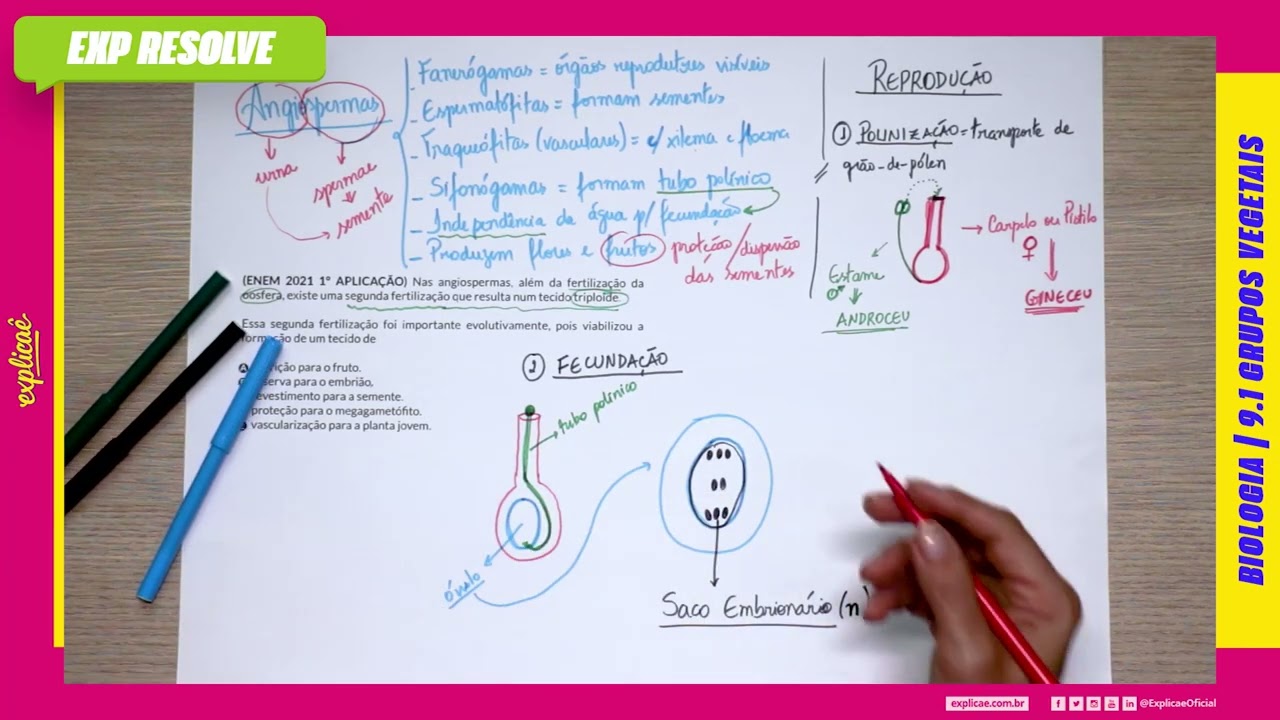 EXP RESOLVE
Angiospermas
urna
spermae
semente
- Fanerógamas = órgãos reprodutores visíveis
- Espermatófitas = formam sementes
- Traqueófitas (vasculares) = c/ xilema e floema
- Sifonógamas = formam tubo polínico
- Independência da água p/ fecundação
- Produzem flores e frutos proteção/dispersão
das sementes
REPRODUÇÃO
① POLINIZAÇÃO = transporte de
grão-de-pólen
Estame
♂
ANDROCEU
Carpelo ou Pistilo
♀
GINECEU
(ENEM 2021 1º APLICAÇÃO) Nas angiospermas, além da fertilização da
oosfera, existe uma segunda fertilização que resulta num tecido triploide.
Essa segunda fertilização foi importante evolutivamente, pois viabilizou a
formação de um tecido de
A ição para o fruto.
serva para o embrião,
evestimento para a semente.
proteção para o megagametófito.
vascularização para a planta jovem.
② FECUNDAÇÃO
tubo polínico
óvulo
Saco Embrionário (n)
explicaê
BIOLOGIA | 9.1 GRUPOS VEGETAIS
explicae.com.br
@ExplicaeOficial